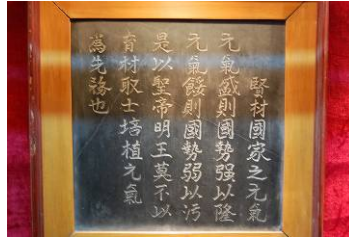 賢材國家之元氣
元氣盛則國勢强以隆
元氣餒則國勢弱以污
是以聖帝明王莫不以
育材取士培植元氣
爲先務也